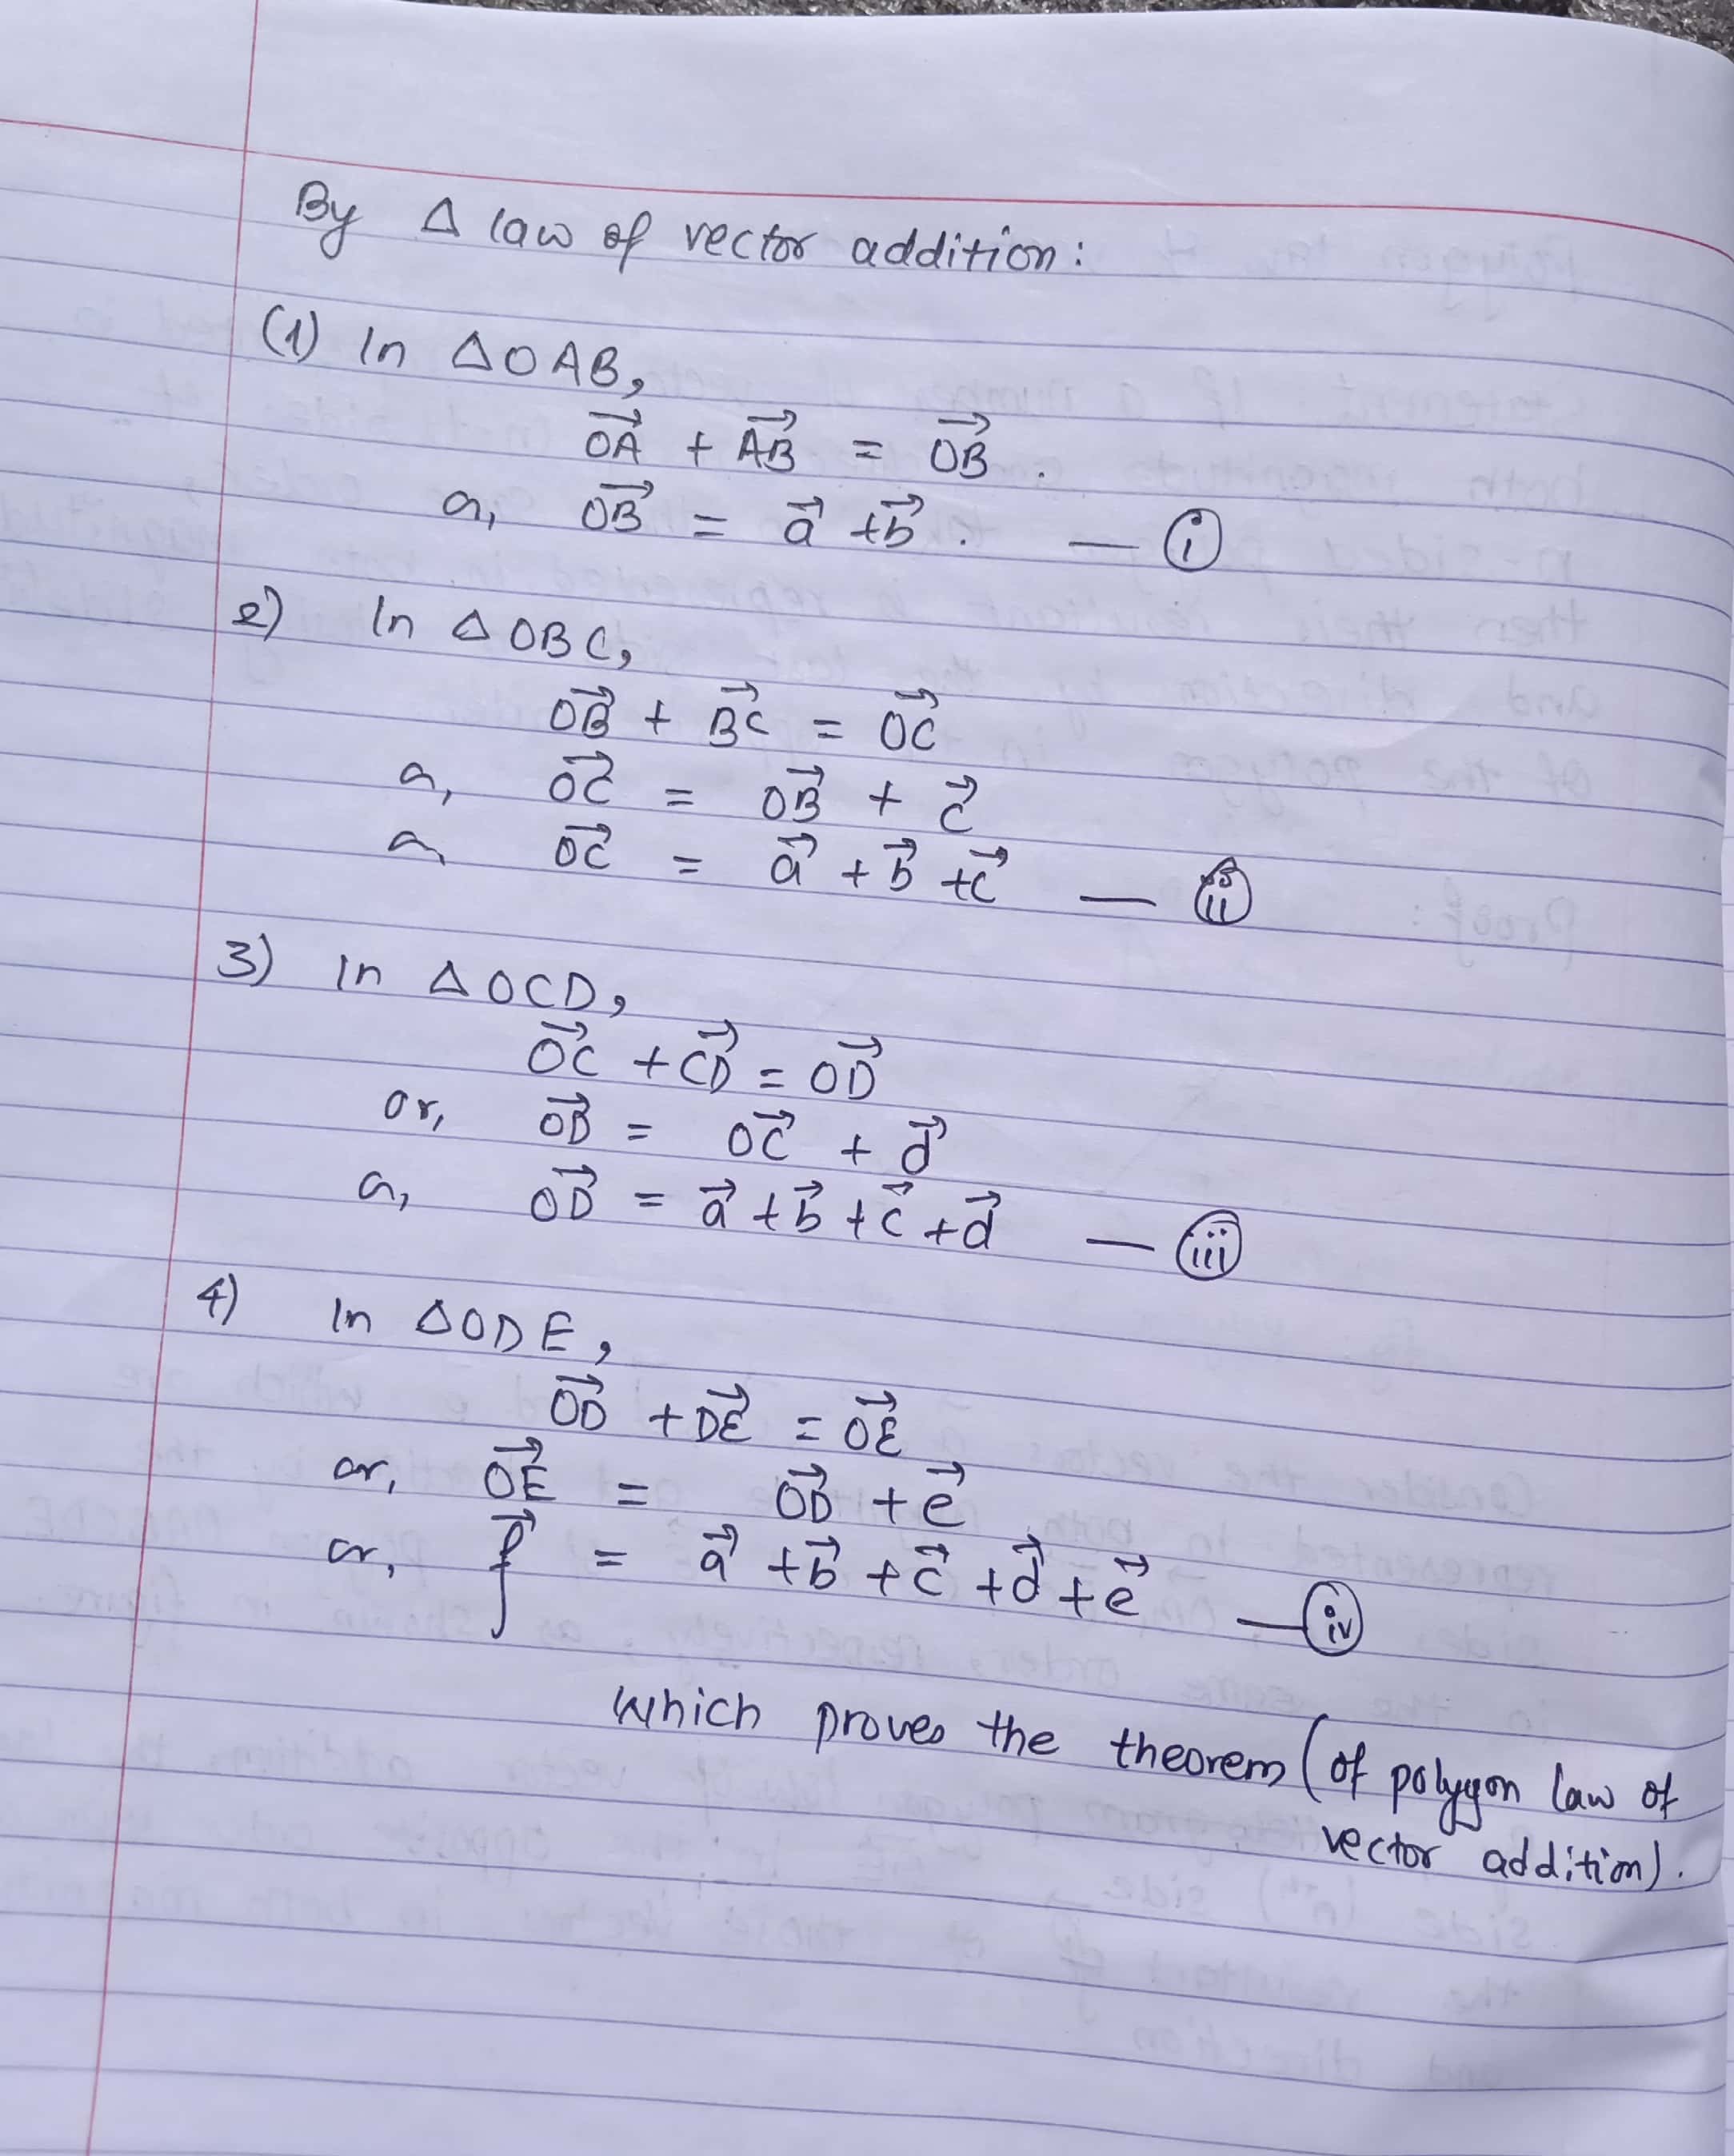 By △ law of vector addition:
(1) In △OAB,
$\vec{OA} + \vec{AB} = \vec{OB}$.
or, $\vec{OB} = \vec{a} + \vec{b}$. — (i)
2) In △OBC,
$\vec{OB} + \vec{BC} = \vec{OC}$
or, $\vec{OC} = \vec{OB} + \vec{c}$
or $\vec{OC} = \vec{a} + \vec{b} + \vec{c}$ — (ii)
3) In △OCD,
$\vec{OC} + \vec{CD} = \vec{OD}$
or, $\vec{OD} = \vec{OC} + \vec{d}$
or, $\vec{OD} = \vec{a} + \vec{b} + \vec{c} + \vec{d}$ — (iii)
4) In △ODE,
$\vec{OD} + \vec{DE} = \vec{OE}$
or, $\vec{OE} = \vec{OD} + \vec{e}$
or, $\vec{f} = \vec{a} + \vec{b} + \vec{c} + \vec{d} + \vec{e}$ — (iv)
which proves the theorem (of polygon law of
vector addition).